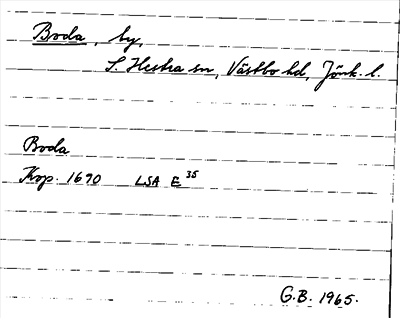 Boda, by,
S. Hestra sn, Västbo hd, Jönk. l.
Boda
Kop. 1690 LSA E 35
G.B. 1965.